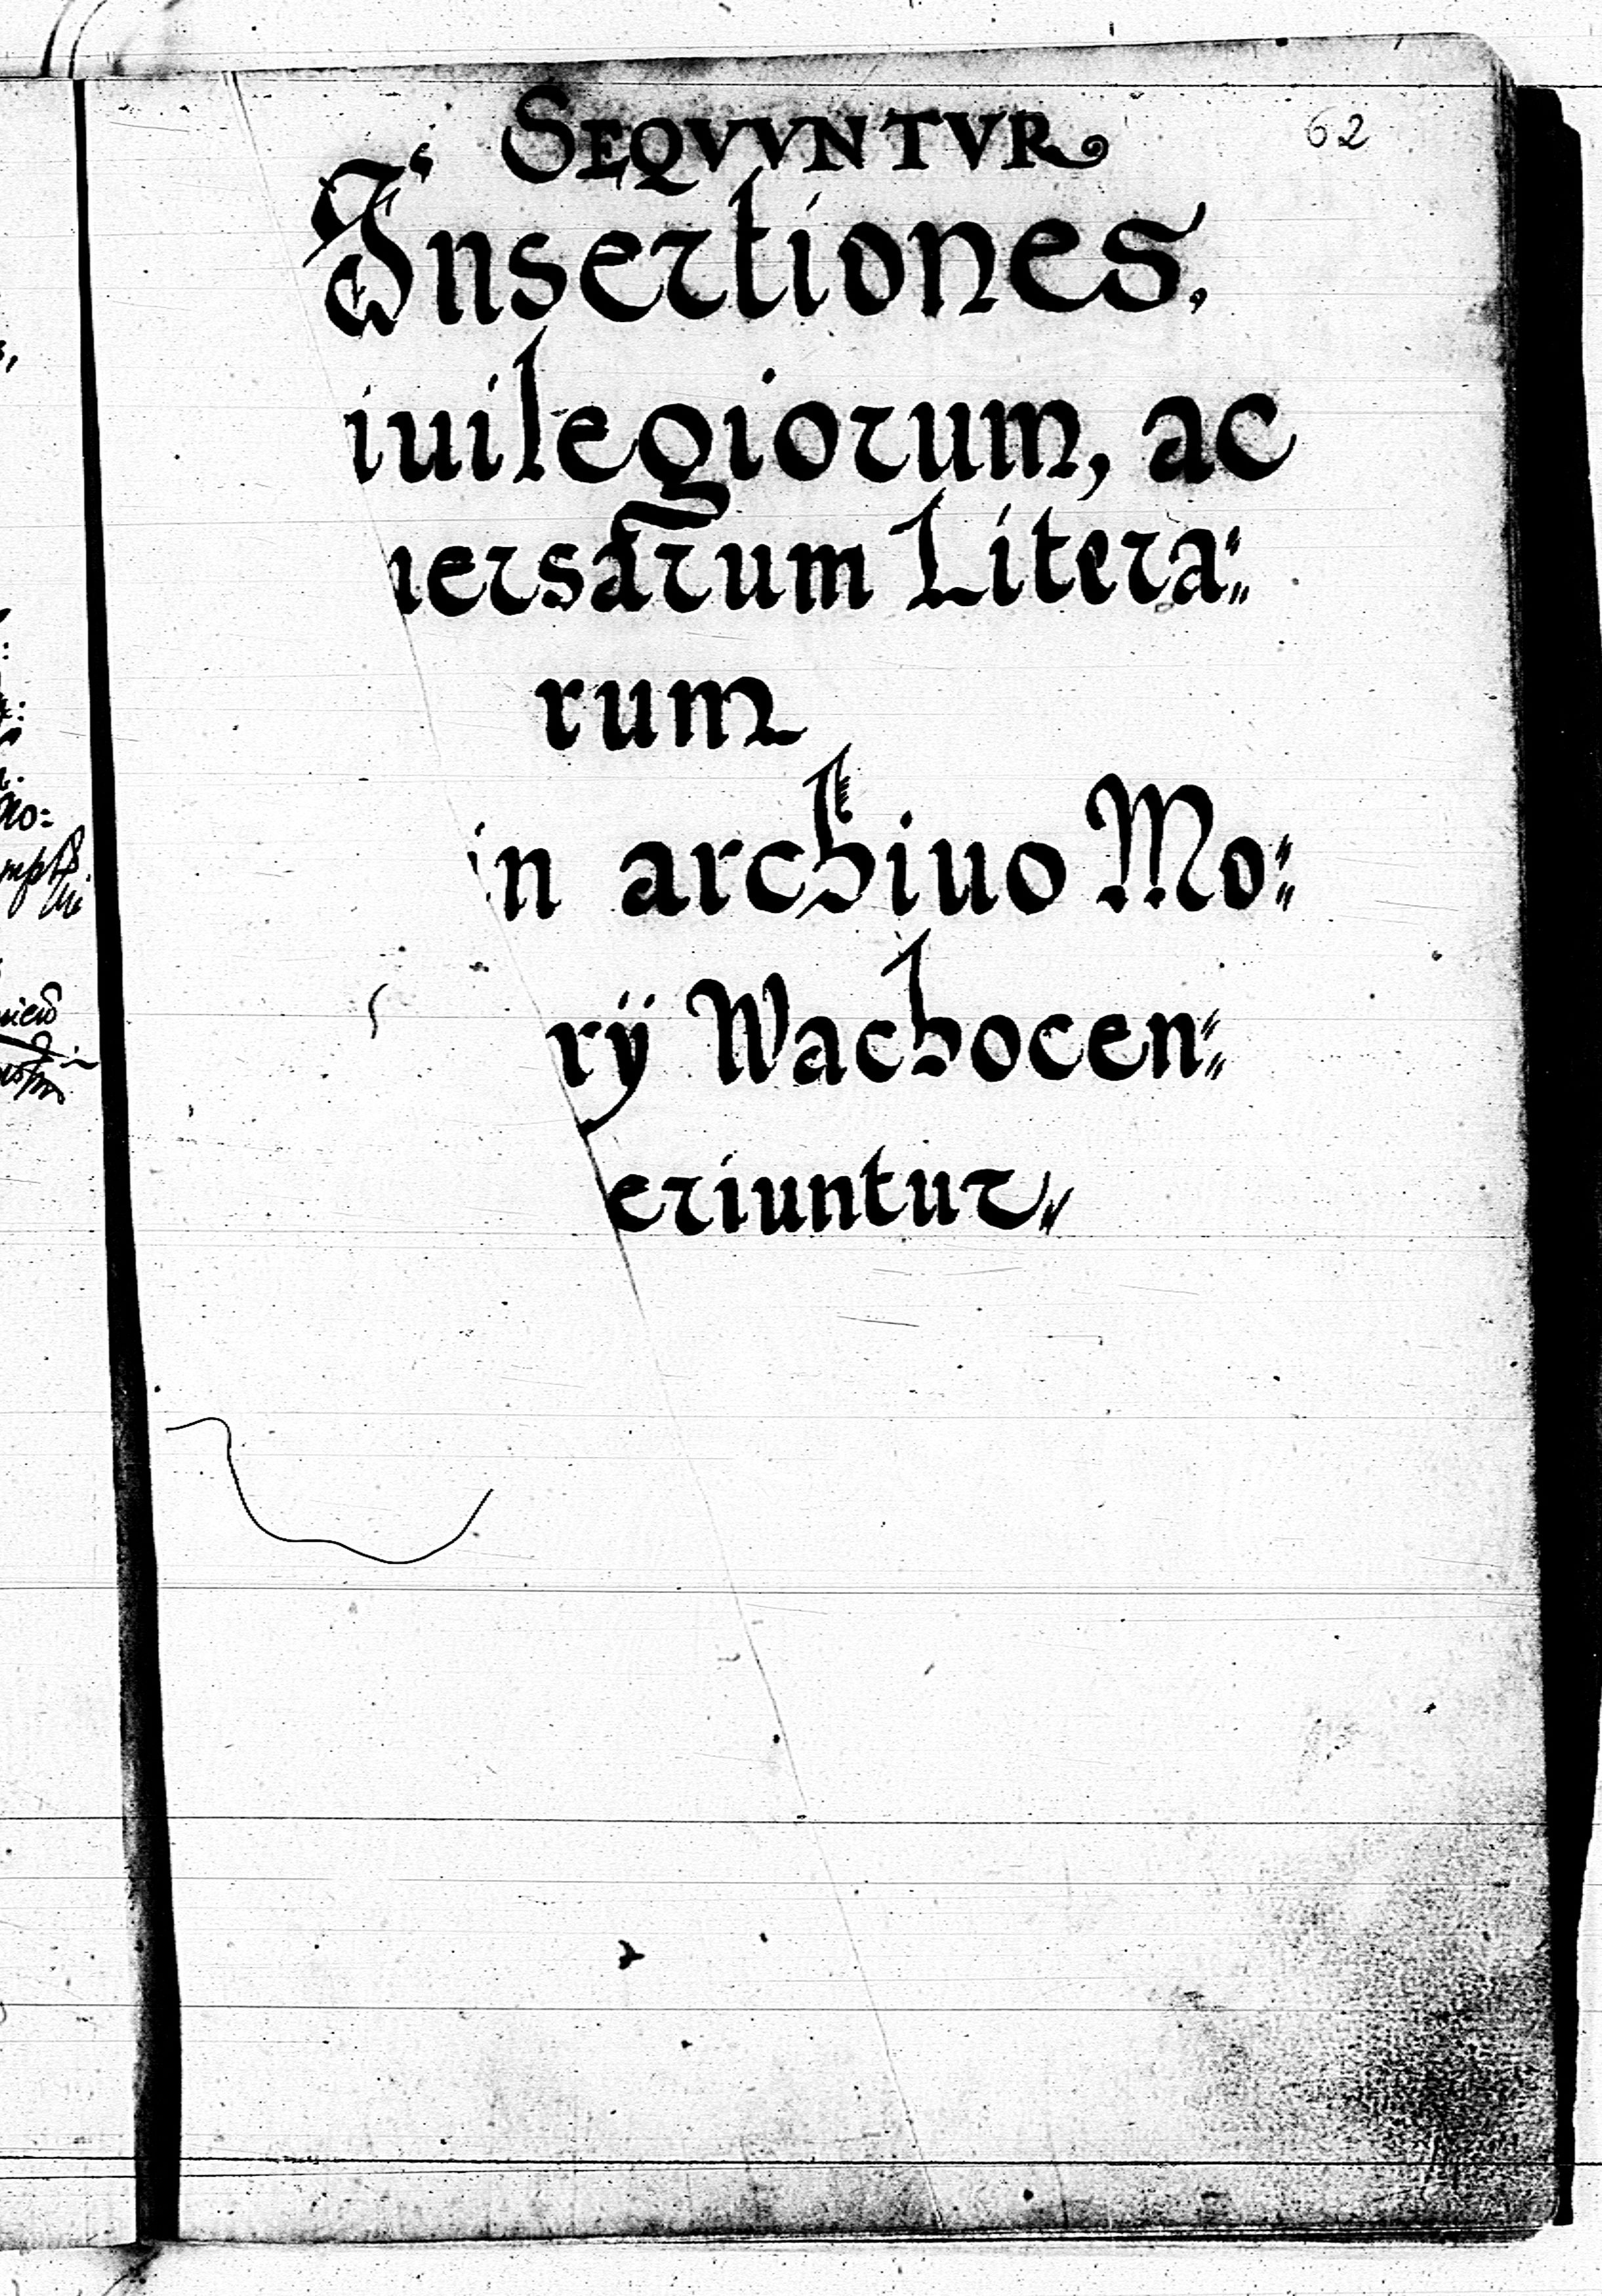 62
SEQVVNTVR
Insertiones,
iuilegiorum, ac
uersarum Litera:
rum
in archiuo Mo:
rij Wachocen:
eriuntur